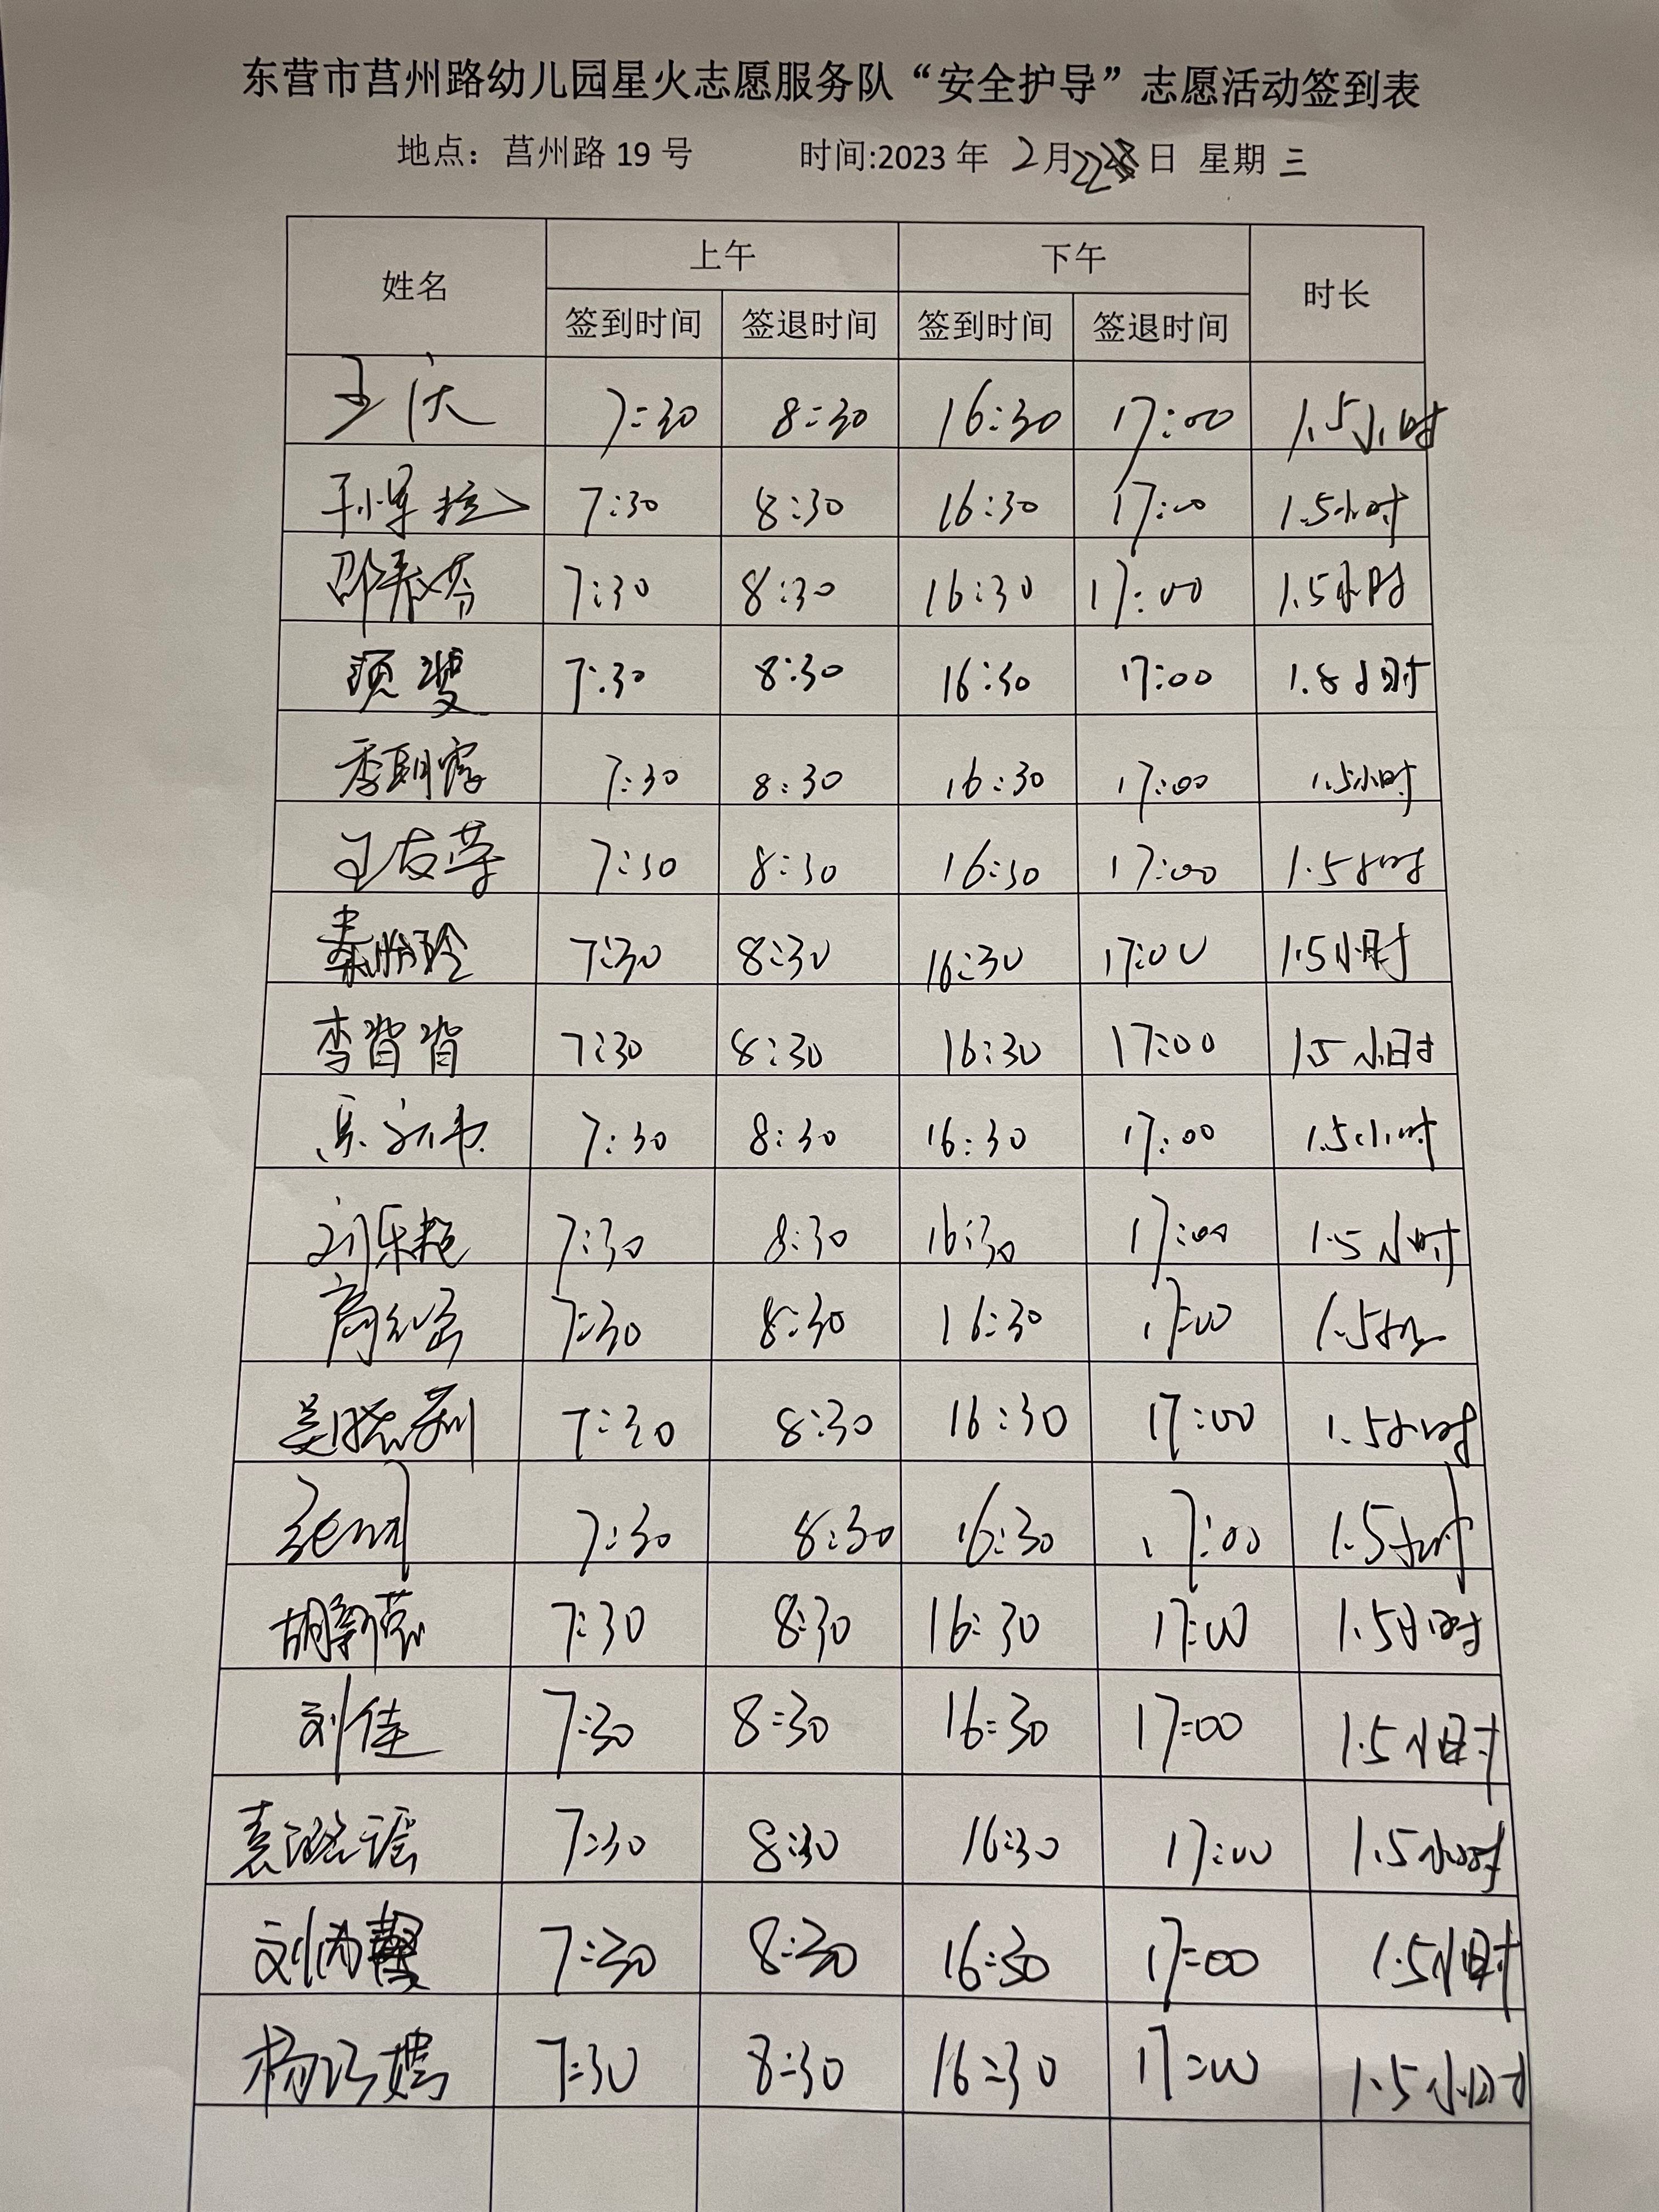 东营市莒州路幼儿园星火志愿服务队“安全护导”志愿活动签到表
地点：莒州路 19 号 时间:2023 年 2 月 22 日 星期 三
姓名 上午 下午 时长
签到时间 签退时间 签到时间 签退时间
7:30 8:30 16:30 17:00 1.5小时
7:30 8:30 16:30 17:00 1.5小时
7:30 8:30 16:30 17:00 1.5小时
7:30 8:30 16:30 17:00 小时
7:30 8:30 16:30 17:00 1.5小时
7:30 8:30 16:30 17:00 1.5小时
7:30 8:30 16:30 17:00 1.5小时
李背背 7:30 8:30 16:30 17:00 1.5小时
7:30 8:30 16:30 17:00 1.5小时
刘乐艳 7:30 8:30 16:30 17:00 1.5小时
7:30 8:30 16:30 17:00 1.5小时
7:30 8:30 16:30 17:00 1.5小时
7:30 8:30 16:30 17:00 1.5小时
7:30 8:30 16:30 17:00 1.5小时
刘佳 7:30 8:30 16:30 17:00 1.5小时
袁潞瑶 7:30 8:30 16:30 17:00 1.5小时
7:30 8:30 16:30 17:00 1.5小时
杨巧嫣 7:30 8:30 16:30 17:00 1.5小时